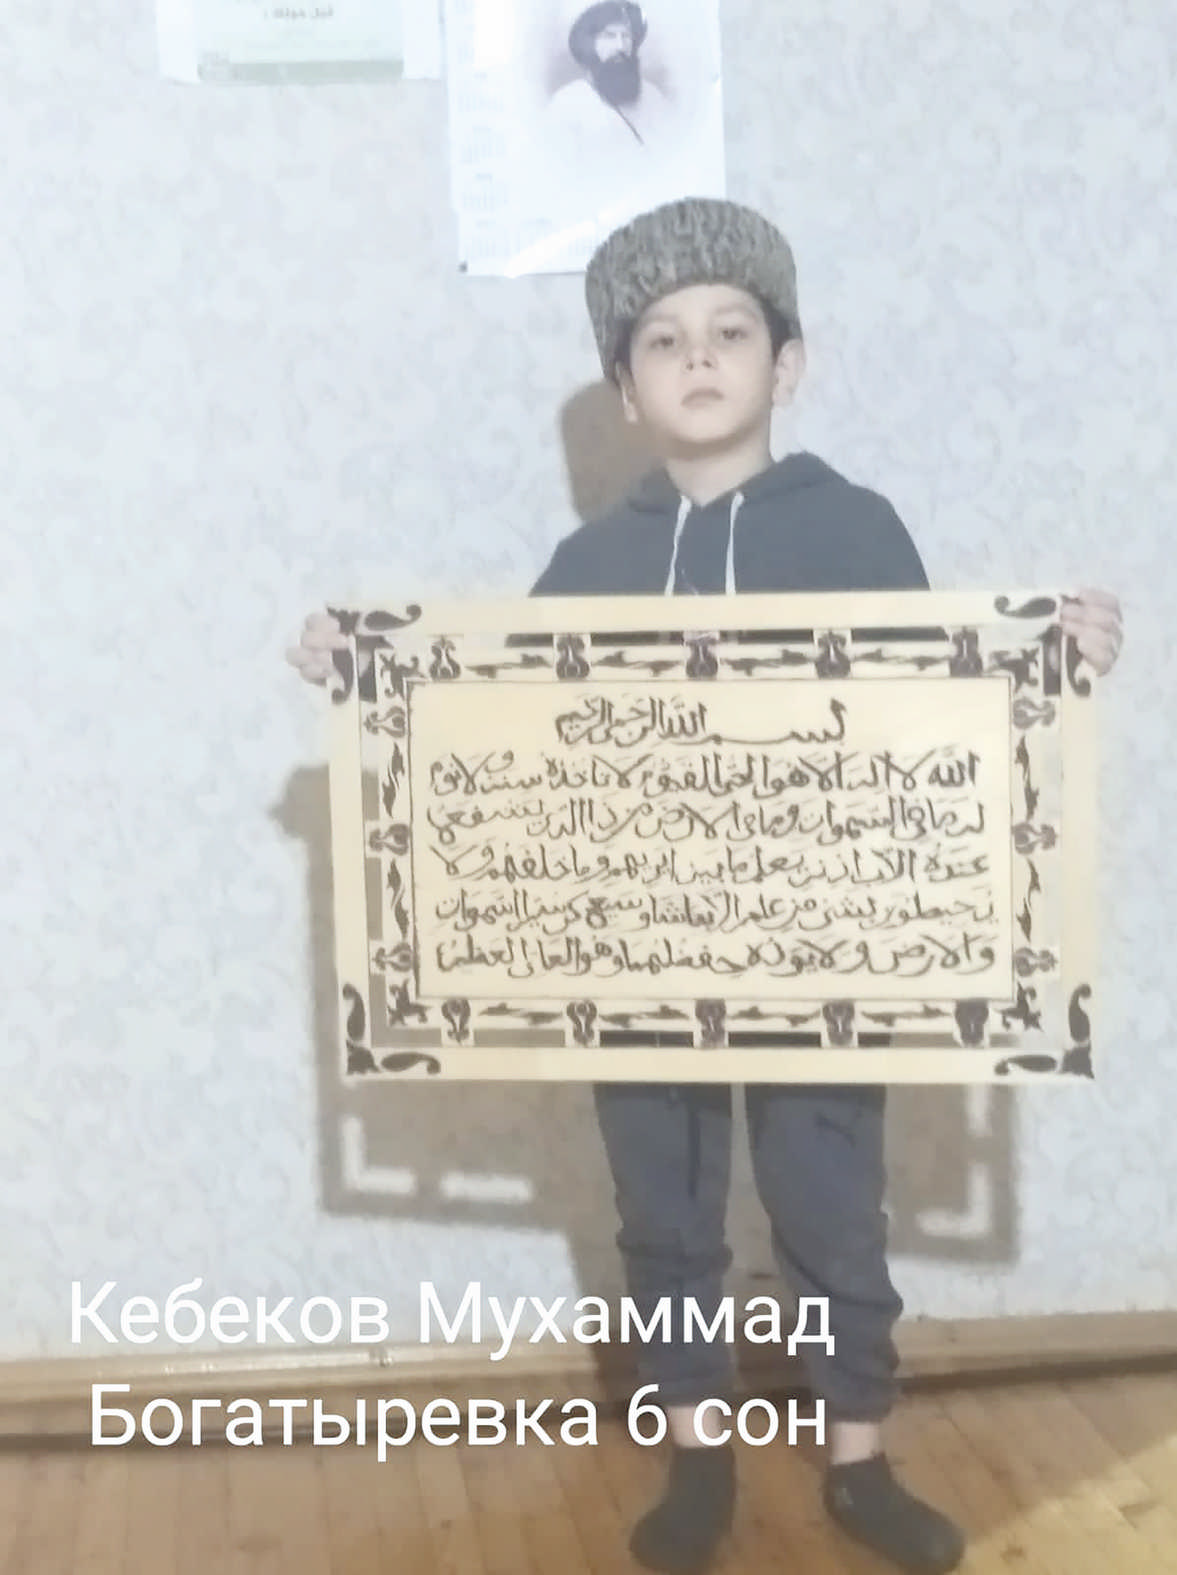 قبل حولته :
بسم الله الرحمن الرحيم
الله لا اله الا هو الحي القيوم لا تاخذه سنة ولا نوم
له ما في السموات وما في الارض من ذا الذي يشفع
عنده الا باذنه يعلم ما بين ايديهم وما خلفهم ولا
يحيطون بشئ من علمه الا بما شاء وسع كرسيه السموات
والارض ولا يؤده حفظهما وهو العلي العظيم
Кебеков Мухаммад
Богатыревка 6 сон